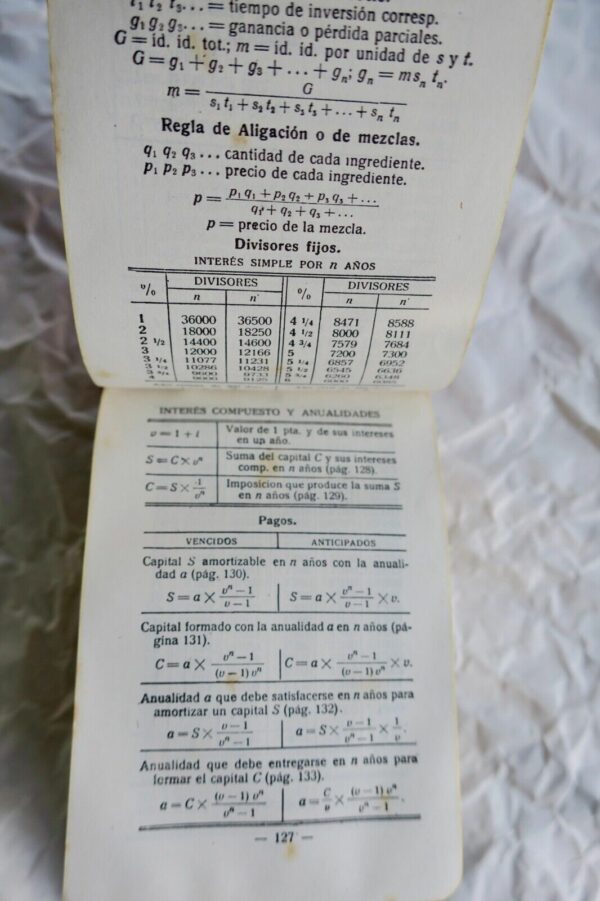 t₁ t₂ t₃... = tiempo de inversión corresp.
g₁ g₂ g₃... = ganancia o pérdida parciales.
G = id. id. tot.; m = id. id. por unidad de s y t.
G = g₁ + g₂ + g₃ + ... + gₙ; gₙ = msₙ tₙ.
m = G / (s₁ t₁ + s₂ t₂ + s₃ t₃ + ... + sₙ tₙ)
Regla de Aligación o de mezclas.
q₁ q₂ q₃... cantidad de cada ingrediente.
p₁ p₂ p₃... precio de cada ingrediente.
p = (p₁ q₁ + p₂ q₂ + p₃ q₃ + ...) / (q₁ + q₂ + q₃ + ...)
p = precio de la mezcla.
Divisores fijos.
INTERÉS SIMPLE POR n AÑOS
% DIVISORES % DIVISORES
n n' n n'
1 36000 36500 4 1/4 8471 8588
2 18000 18250 4 1/2 8000 8111
2 1/2 14400 14600 4 3/4 7579 7684
3 12000 12166 5 7200 7300
3 1/4 11077 11231 5 1/4 6857 6952
3 1/2 10286 10428 5 1/2 6545 6636
3 3/4 9600 9733 5 3/4 6260 6348
4 9000 9125 6 6000 6085
INTERÉS COMPUESTO Y ANUALIDADES
v = 1 + i Valor de 1 pta. y de sus intereses
en un año.
S = C × vⁿ Suma del capital C y sus intereses
comp. en n años (pág. 128).
C = S × 1/vⁿ Imposicion que produce la suma S
en n años (pág. 129).
Pagos.
VENCIDOS ANTICIPADOS
Capital S amortizable en n años con la anuali-
dad a (pág. 130).
S = a × (vⁿ − 1)/(v − 1) S = a × (vⁿ − 1)/(v − 1) × v.
Capital formado con la anualidad a en n años (pá-
gina 131).
C = a × (vⁿ − 1)/((v − 1) vⁿ) C = a × (vⁿ − 1)/((v − 1) vⁿ) × v.
Anualidad a que debe satisfacerse en n años para
amortizar un capital S (pág. 132).
a = S × (v − 1)/(vⁿ − 1) a = S × (v − 1)/(vⁿ − 1) × 1/v.
Anualidad que debe entregarse en n años para
formar el capital C (pág. 133).
a = C × ((v − 1) vⁿ)/(vⁿ − 1) a = C/v × ((v − 1) vⁿ)/(vⁿ − 1).
— 127 —